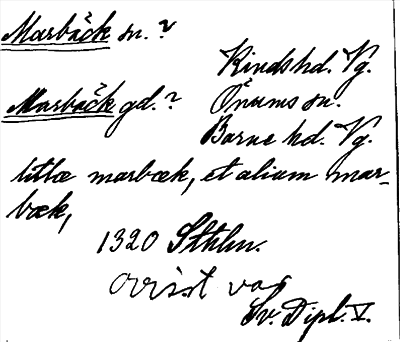 Marbäck sn.?
Kinds hd. Vg.
Marbäck gd.? Önums sn.
Barne hd. Vg.
litlæ marbæk, et alium mar-
bæk,
1320 Sthlm.
ovisst var
Sv. Dipl. V.